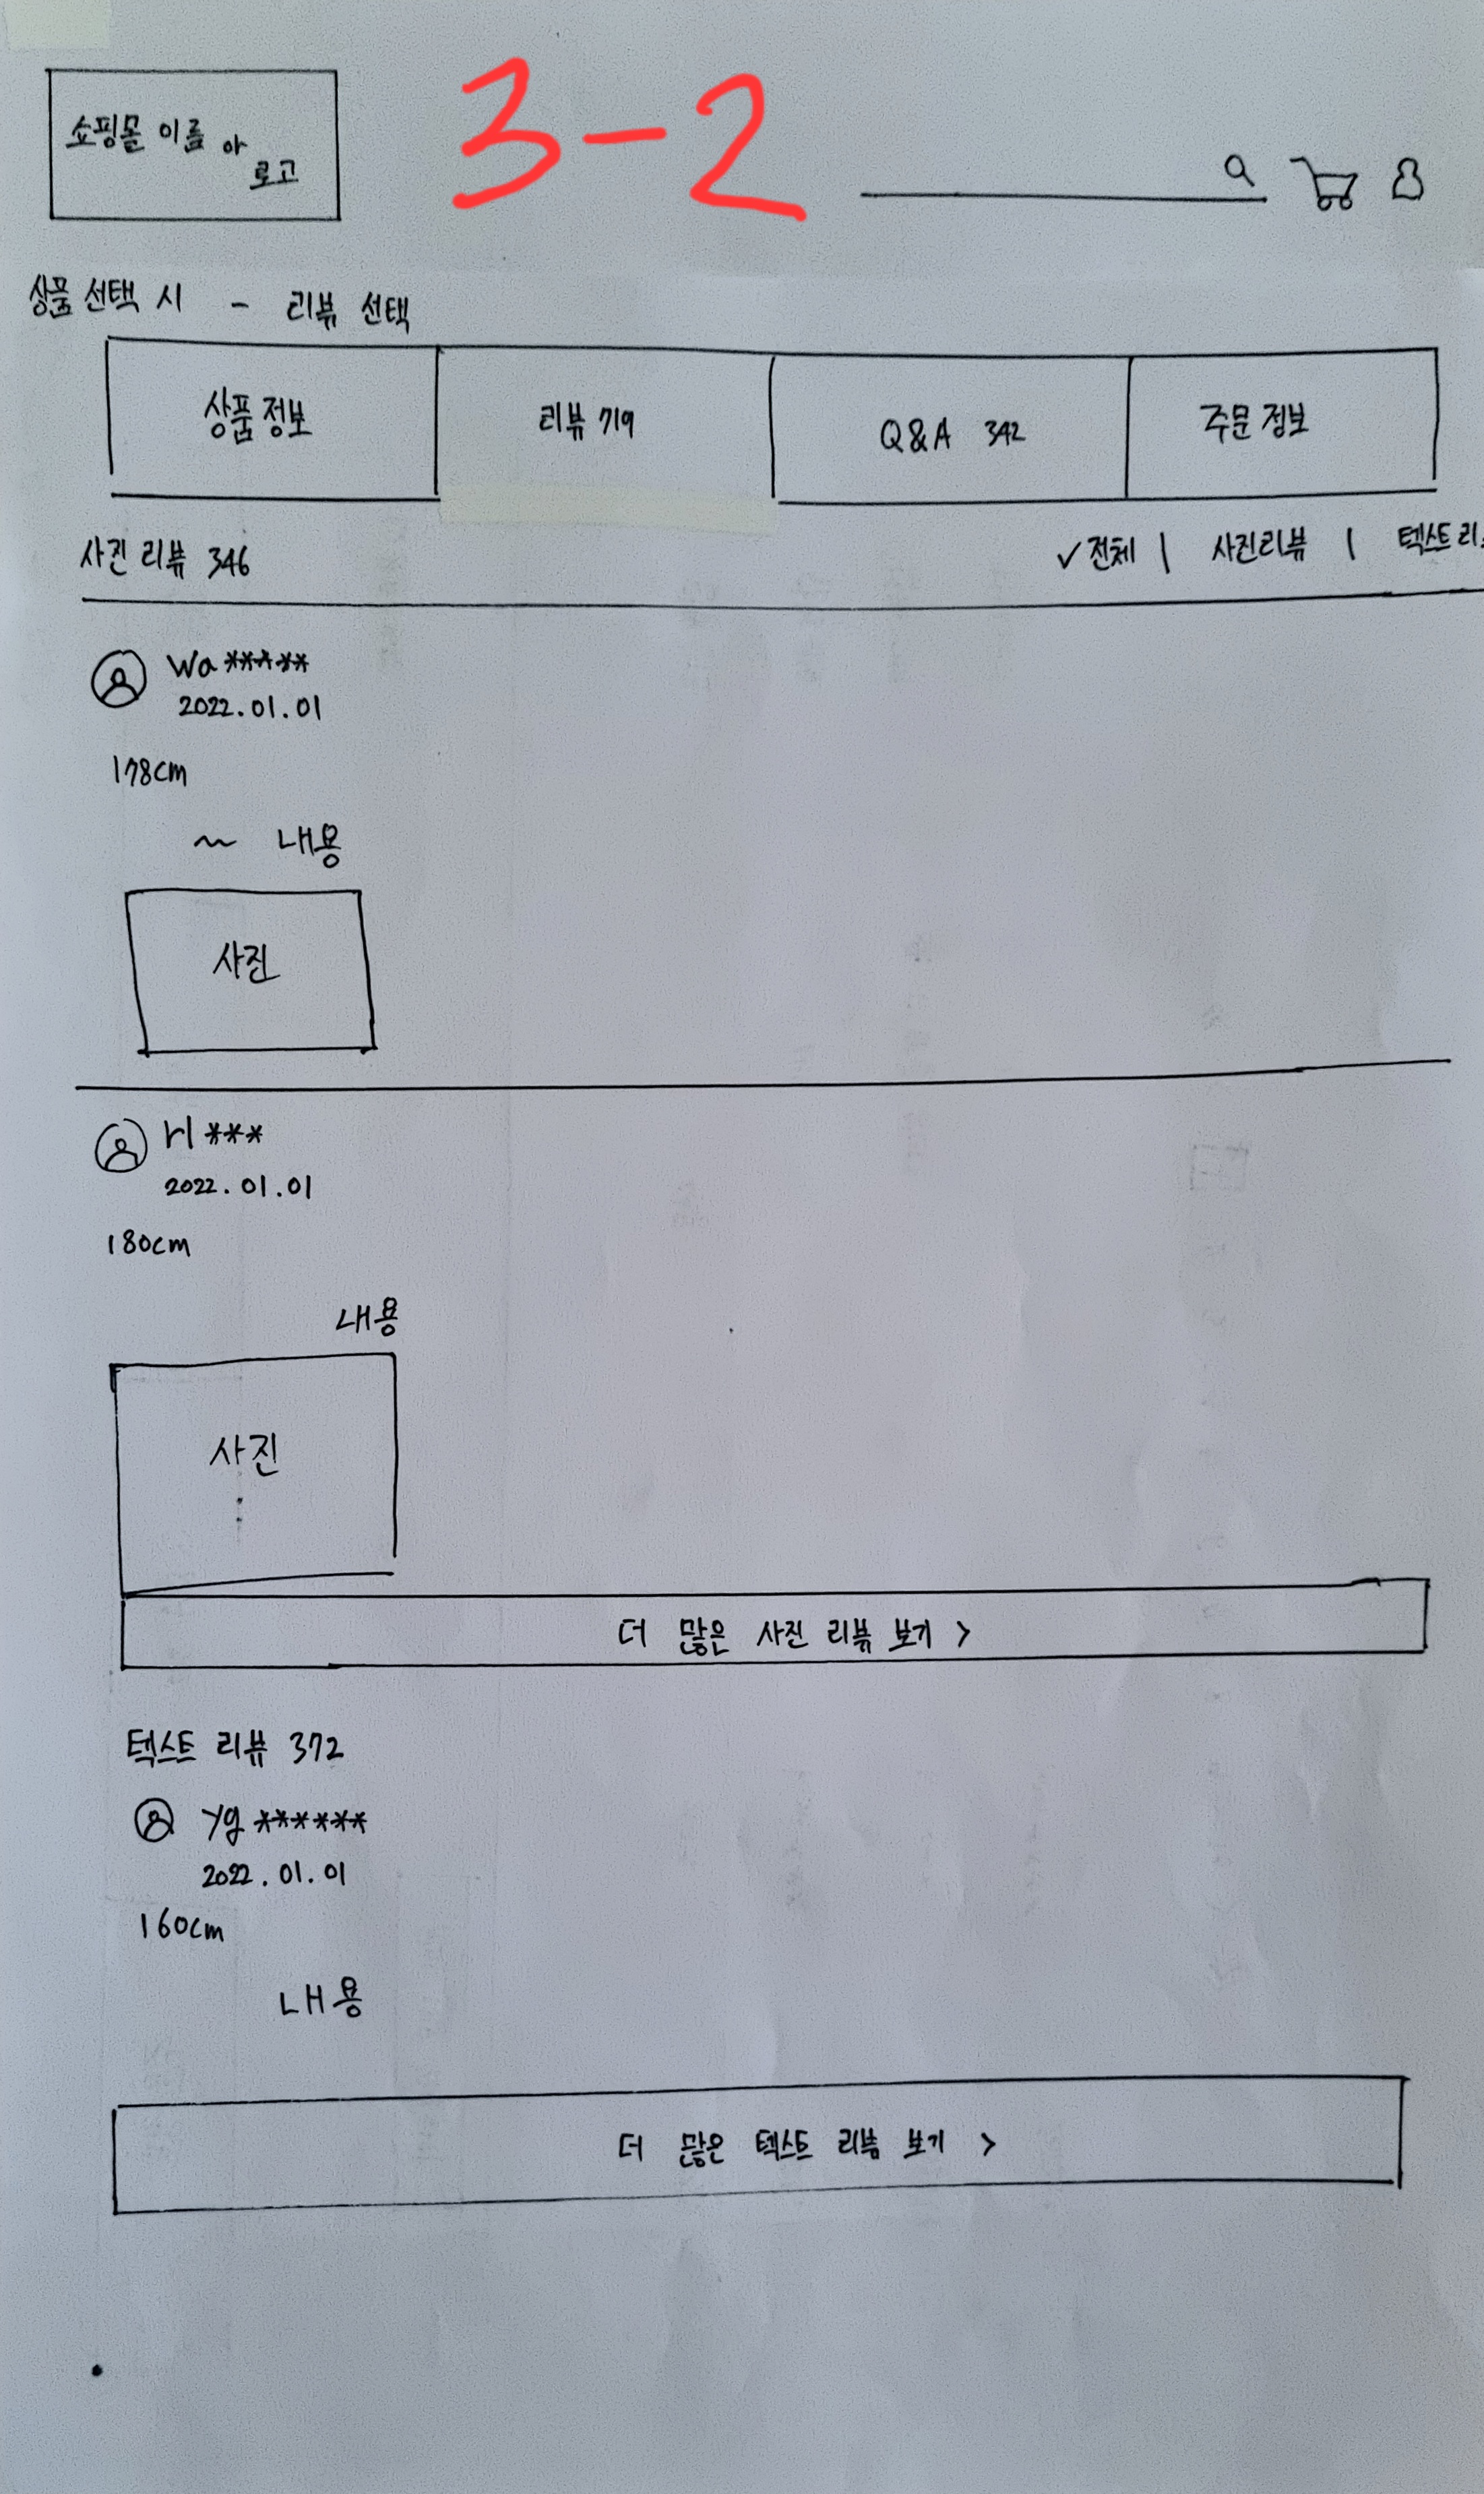 3-2
쇼핑몰 이름 아
로고
상품 선택 시 - 리뷰 선택
상품 정보
리뷰 719
Q&A 342
주문 정보
사진 리뷰 346
✓전체 | 사진리뷰 | 텍스트 리
Wa*****
2022.01.01
178cm
~ 내용
사진
rl ***
2022.01.01
180cm
내용
사진
더 많은 사진 리뷰 보기 >
텍스트 리뷰 372
yg ******
2022.01.01
160cm
내용
더 많은 텍스트 리뷰 보기 >